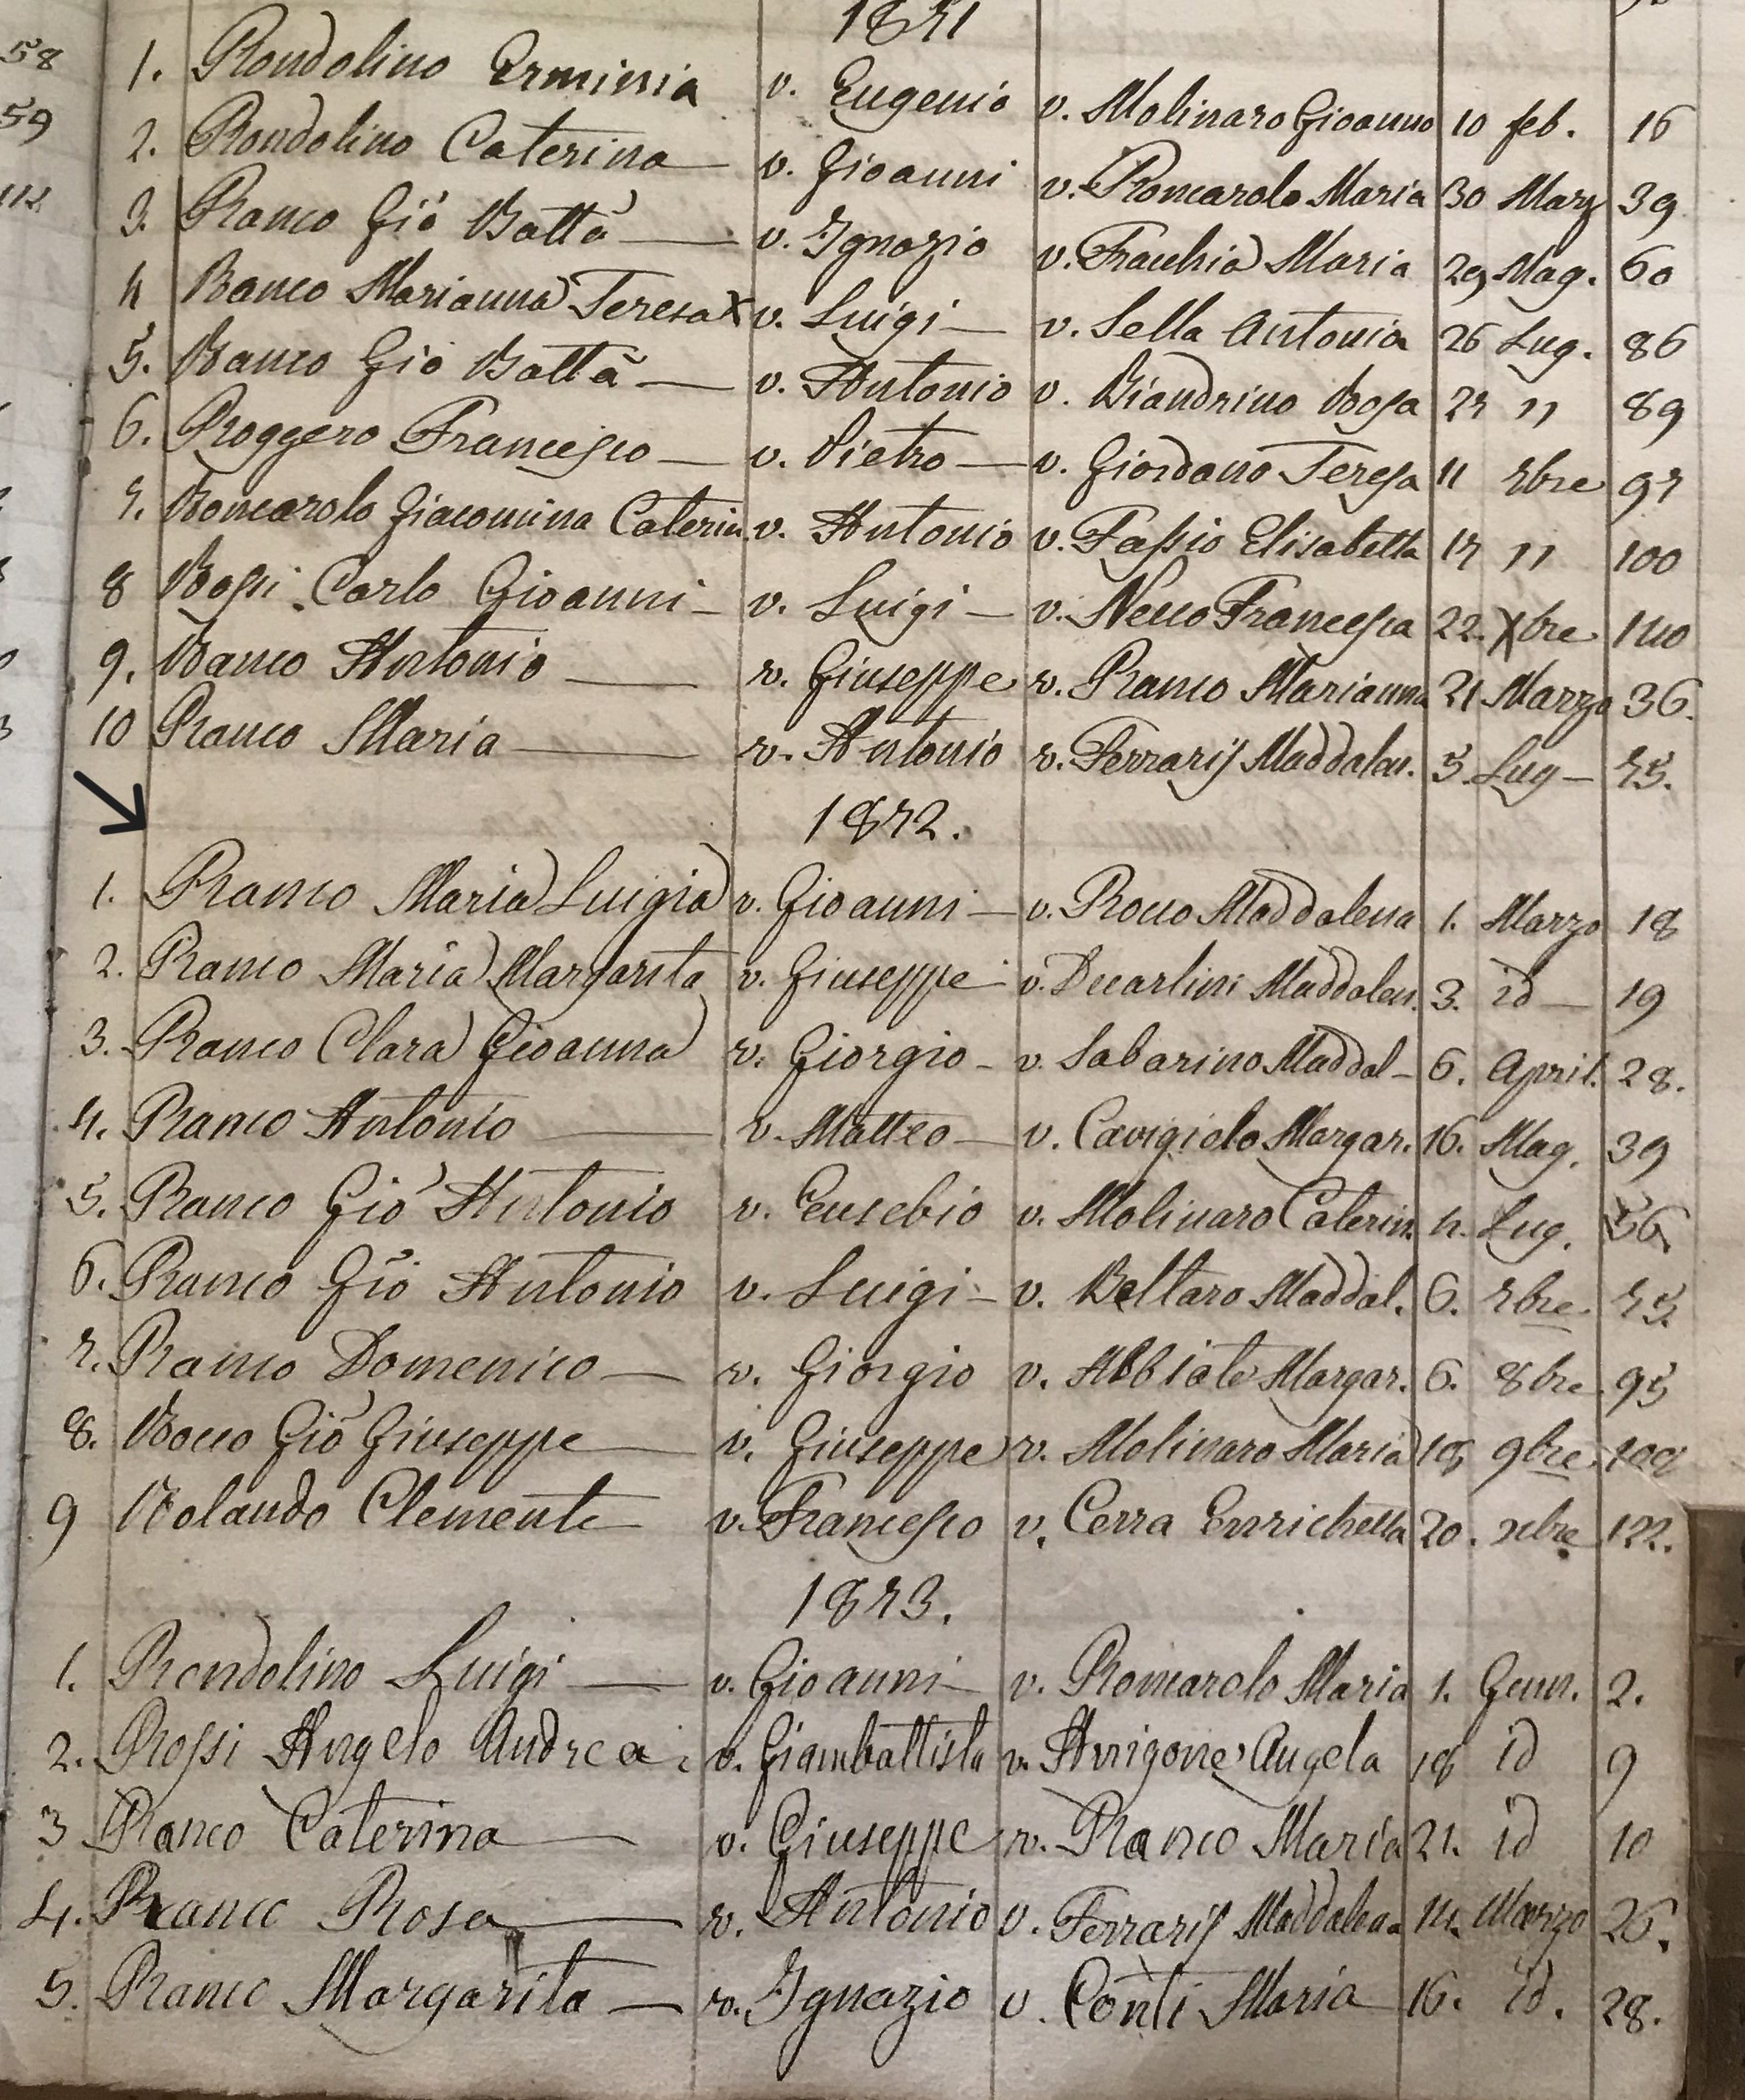 1871
58
1. Rondolino Erminia v. Eugenio v. Molinaro Gioanna 10 feb. 16
59
2. Rondolino Caterina v. Gioanni v. Roncarolo Maria 30 Marz 39
3. Ranco Gio Batta v. Ignazio v. Fracchia Maria 29 Mag. 60
4 Ranco Marianna Teresa x v. Luigi v. Sella Antonia 26 Lug. 86
5. Ranco Gio Batta v. Antonio v. Biandrino Rosa 27 " 89
6. Roggero Francesco v. Pietro v. Giordano Teresa 11 7bre 97
7. Roncarolo Giacomina Caterin v. Antonio v. Fassio Elisabetta 17 " 100
8 Rossi Carlo Gioanni v. Luigi v. Necco Francesca 22. Xbre 140
9. Ranco Antonio v. Giuseppe v. Ranco Marianna 21 Marzo 36.
10 Ranco Maria v. Antonio v. Ferraris Maddalen. 5 Lug 75.
1872.
1. Ranco Maria Luigia v. Gioanni v. Rocco Maddalena 1. Marzo 18
2. Ranco Maria Margarita v. Giuseppe v. Decarlini Maddalen. 3. id 19
3. Ranco Clara Gioanna v. Giorgio v. Sabarino Maddal 6. April. 28.
4. Ranco Antonio v. Matteo v. Cavigiolo Margar. 16. Mag. 39
5. Ranco Gio Antonio v. Eusebio v. Molinaro Caterin. 4. Lug. 56
6. Ranco Gio Antonio v. Luigi v. Beltaro Maddal. 6. 7bre 75.
7. Ranco Domenico v. Giorgio v. Abbiate Margar. 6. 8bre 95
8. Rocco Gio Giuseppe v. Giuseppe v. Molinaro Maria 18 9bre
9 Rolando Clemente v. Francesco v. Cerra Enrichetta 20. xbre 122.
1873.
1. Rondolino Luigi v. Gioanni v. Roncarolo Maria 1. Genn. 2.
2. Rossi Angelo Andrea v. Giambattista v. Arrigone Angela 18 id 9
3 Ranco Caterina v. Giuseppe v. Ranco Maria 21. id 10
4. Ranco Rosa v. Antonio v. Ferraris Maddalena 14. Marzo 26.
5. Ranco Margarita v. Ignazio v. Conti Maria 16. id. 28.